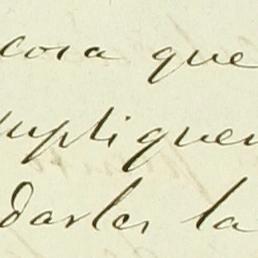 cosa que
supliquen
darles la